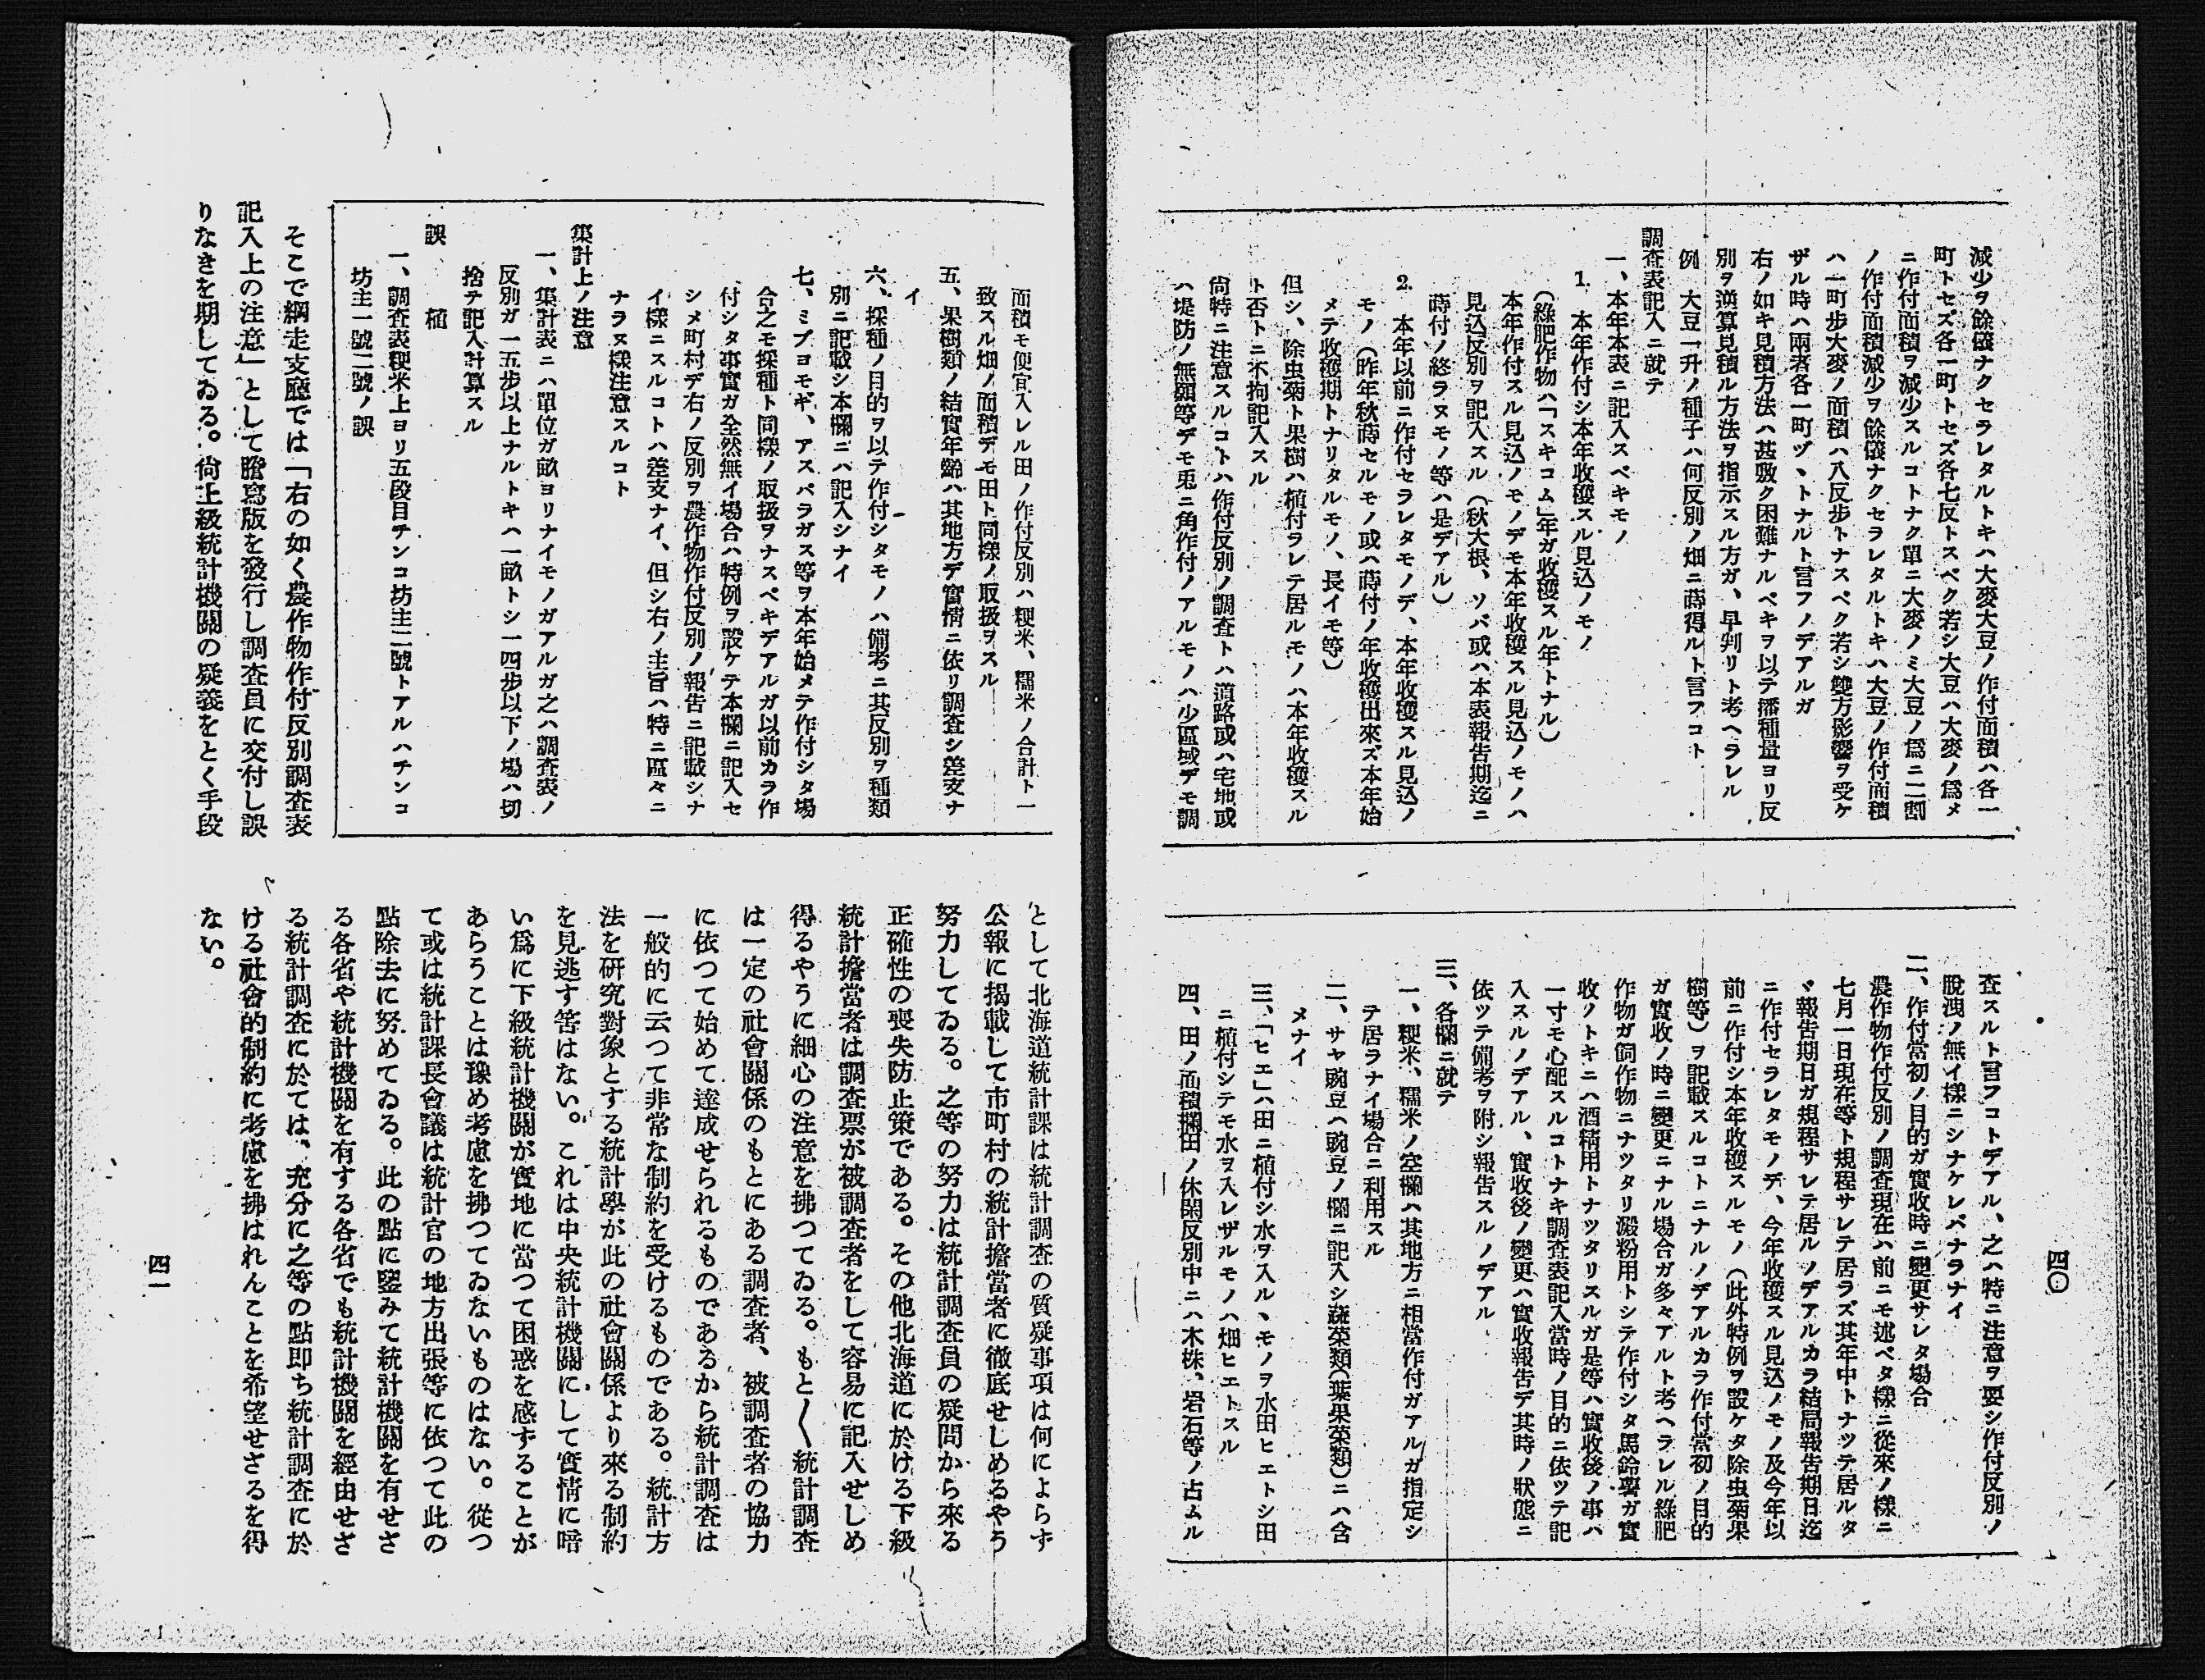 減少ヲ餘儀ナクセラレタルトキハ大麥大豆ノ作付面積ハ各一
町トセズ各一町トセズ各七反トスベク若シ大豆ハ大麥ノ爲メ
ニ作付面積ヲ減少スルコトナク單ニ大麥ノミ大豆ノ爲ニ二割
ノ作付面積減少ヲ餘儀ナクセラレタルトキハ大豆ノ作付面積
ハ一町歩大麥ノ面積ハ八反歩トナスベク若シ雙方影響ヲ受ケ
ザル時ハ兩者各一町ヅヽトナルト言フノデアルガ
右ノ如キ見積方法ハ甚敷ク困難ナルベキヲ以テ播種量ヨリ反
別ヲ逆算見積ル方法ヲ指示スル方ガ、早判リト考ヘラレル
例 大豆一升ノ種子ハ何反別ノ畑ニ蒔得ルト言フコト
調査表記入ニ就テ
一、本年本表ニ記入スベキモノ
1. 本年作付シ本年收穫スル見込ノモノ
(綠肥作物ハ「スキコム」年ガ收穫スル年トナル)
本年作付スル見込ノモノデモ本年收穫スル見込ノモノハ
見込反別ヲ記入スル(秋大根、ソバ或ハ本表報告期迄ニ
蒔付ノ終ラヌモノ等ハ是デアル)
2. 本年以前ニ作付セラレタモノデ、本年收穫スル見込ノ
モノ(昨年秋蒔セルモノ或ハ蒔付ノ年收穫出來ズ本年始
メテ收穫期トナリタルモノ、長イモ等)
但シ、除虫菊ト果樹ハ植付ラレテ居ルモノハ本年收穫スル
ト否トニ不拘記入スル
尙特ニ注意スルコトハ作付反別ノ調査トハ道路或ハ宅地或
ハ堤防ノ無願等デモ兎ニ角作付ノアルモノハ少區域デモ調
査スルト言フコトデアル、之ハ特ニ注意ヲ要シ作付反別ノ
脫洩ノ無イ樣ニシナケレバナラナイ
二、作付當初ノ目的ガ實收時ニ變更サレタ場合
農作物作付反別ノ調査現在ハ前ニモ述ベタ樣ニ從來ノ樣ニ
七月一日現在等ト規程サレテ居ラズ其年中トナツテ居ルタ
ヾ報告期日ガ規程サレテ居ルノデアルカラ結局報告期日迄
ニ作付セラレタモノデ、今年收穫スル見込ノモノ及今年以
前ニ作付シ本年收穫スルモノ(此外特例ヲ設ケタ除虫菊果
樹等)ヲ記載スルコトニナルノデアルカラ作付當初ノ目的
ガ實收ノ時ニ變更ニナル場合ガ多々アルト考ヘラレル綠肥
作物ガ飼作物ニナツタリ澱粉用トシテ作付シタ馬鈴薯ガ實
收ノトキニハ酒精用トナツタリスルガ是等ハ實收後ノ事ハ
一寸モ心配スルコトナキ調査表記入當時ノ目的ニ依ツテ記
入スルノデアル、實收後ノ變更ハ實收報告デ其時ノ狀態ニ
依ツテ備考ヲ附シ報告スルノデアル
三、各欄ニ就テ
一、粳米、糯米ノ空欄ハ其地方ニ相當作付ガアルガ指定シ
テ居ラナイ場合ニ利用スル
二、サヤ豌豆ハ豌豆ノ欄ニ記入シ蔬菜類(葉果菜類)ニハ含
メナイ
三、「ヒエ」ハ田ニ植付シ水ヲ入ルヽモノヲ水田ヒエトシ田
ニ植付シテモ水ヲ入レザルモノハ畑ヒエトスル
四、田ノ面積欄田ノ休閑反別中ニハ木株、岩石等ノ占ムル
四〇
面積モ便宜入レル田ノ作付反別ハ粳米、糯米ノ合計ト一
致スル畑ノ面積デモ田ト同樣ノ取扱ヲスル
五、果樹類ノ結實年齡ハ其地方デ實情ニ依リ調査シ差支ナ
イ
六、採種ノ目的ヲ以テ作付シタモノハ備考ニ其反別ヲ種類
別ニ記載シ本欄ニハ記入シナイ
七、ミブヨモギ、アスパラガス等ヲ本年始メテ作付シタ場
合之モ採種ト同樣ノ取扱ヲナスベキデアルガ以前カラ作
付シタ事實ガ全然無イ場合ハ特例ヲ設ケテ本欄ニ記入セ
シメ町村デ右ノ反別ヲ農作物作付反別ノ報告ニ記載シナ
イ樣ニスルコトハ差支ナイ、但シ右ノ主旨ハ特ニ區々ニ
ナラヌ樣注意スルコト
集計上ノ注意
一、集計表ニハ單位ガ畝ヨリナイモノガアルガ之ハ調査表ノ
反別ガ一五步以上ナルトキハ一畝トシ一四步以下ノ場ハ切
捨テ記入計算スル
誤植
一、調査表粳米上ヨリ五段目チンコ坊主二號トアルハチンコ
坊主一號二號ノ誤
そこで網走支廳では「右の如く農作物作付反別調査表
記入上の注意」として謄寫版を發行し調査員に交付し誤
りなきを期してゐる。尙上級統計機關の疑義をとく手段
として北海道統計課は統計調査の質疑事項は何によらず
公報に揭載して市町村の統計擔當者に徹底せしめるやう
努力してゐる。之等の努力は統計調査員の疑問から來る
正確性の喪失防止策である。その他北海道に於ける下級
統計擔當者は調査票が被調査者をして容易に記入せしめ
得るやうに細心の注意を拂つてゐる。もと〱統計調査
は一定の社會關係のもとにある調査者、被調査者の協力
に依つて始めて達成せられるものであるから統計調査は
一般的に云つて非常な制約を受けるものである。統計方
法を硏究對象とする統計學が此の社會關係より來る制約
を見逃す筈はない。これは中央統計機關にして實情に暗
い爲に下級統計機關が實地に當つて困惑を感ずることが
あらうことは豫め考慮を拂つてゐないものはない。從つ
て或は統計課長會議は統計官の地方出張等に依つて此の
點除去に努めてゐる。此の點に鑒みて統計機關を有せざ
る各省や統計機關を有する各省でも統計機關を經由せざ
る統計調査に於ては、充分に之等の點卽ち統計調査に於
ける社會的制約に考慮を拂はれんことを希望せざるを得
ない。
四一